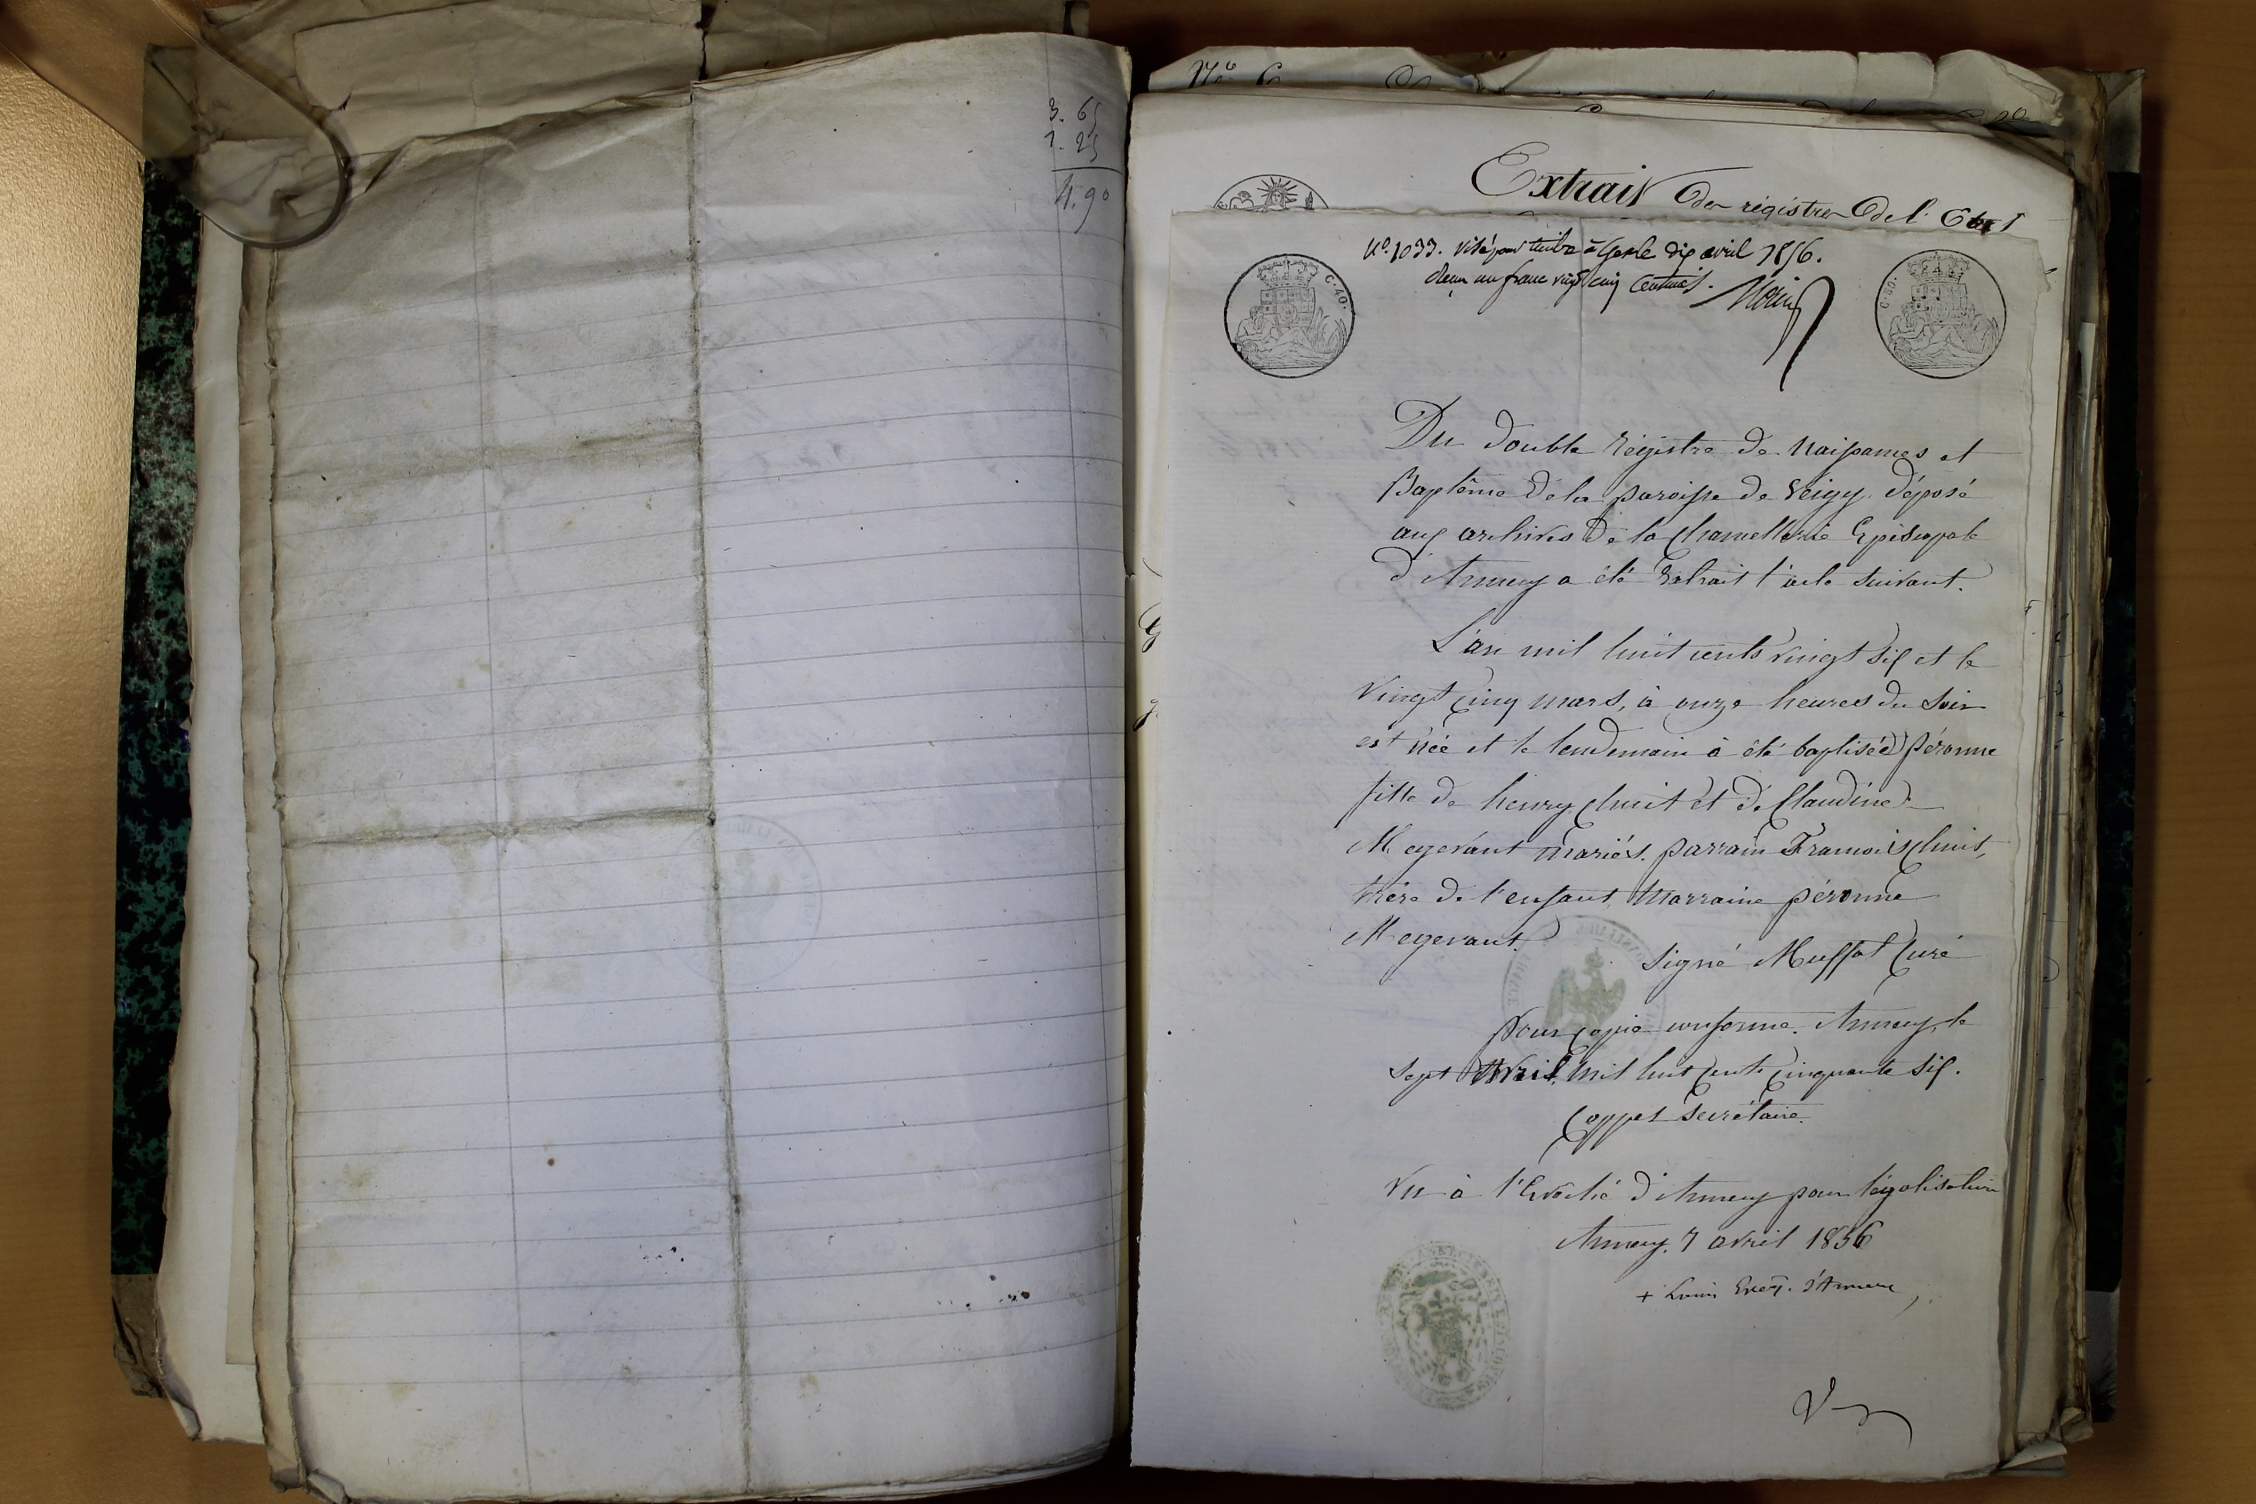 3. 65
1. 25
4. 90
Extrait des régistres de l'Etat
No. 1033. Visé pour timbre à Gex le dix avril 1856.
Reçu un franc vingt cinq centimes. Morin
C. 40.
C. 80.
Du double régistre de Naissances et
Baptême de la paroisse de Veigy déposé
aux archives de la Chancellerie Episcopale
d'Annecy a été Extrait l'acte suivant.
L'an mil huit cents vingt six et le
vingt cinq mars, à onze heures du soir
est née et le lendemain a été baptisée péronne
fille de henry Chuit et de Claudine
Megevant mariés. parrain François Chuit,
frère de l'enfant, Marraine péronne
Megevant.
Signé Muffat Curé
pour copie conforme. Annecy, le
sept Avril mil huit cents cinquante six.
Coppel Secrétaire.
Vu à l'Evêché d'Annecy pour légalisation
Annecy, 7 avril 1856
+ Louis Evêq. d'Annecy